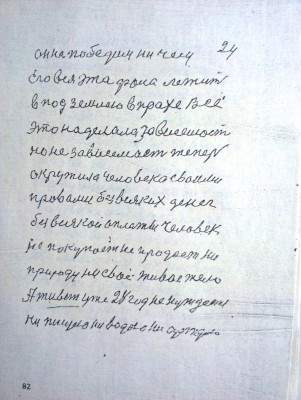 24
он не победим ни чем
Его вся эта фома лежит
в под землею в прахе Всё
это наделала зависемост
но не зависемост теперь
окружила человека своими
правами без всяких денег
без всякой оплаты Человек
не покупает не продает ни
природу ни своё живое тело
А живет уже 28 год не нуждается
ни пищею ни водою ни
82